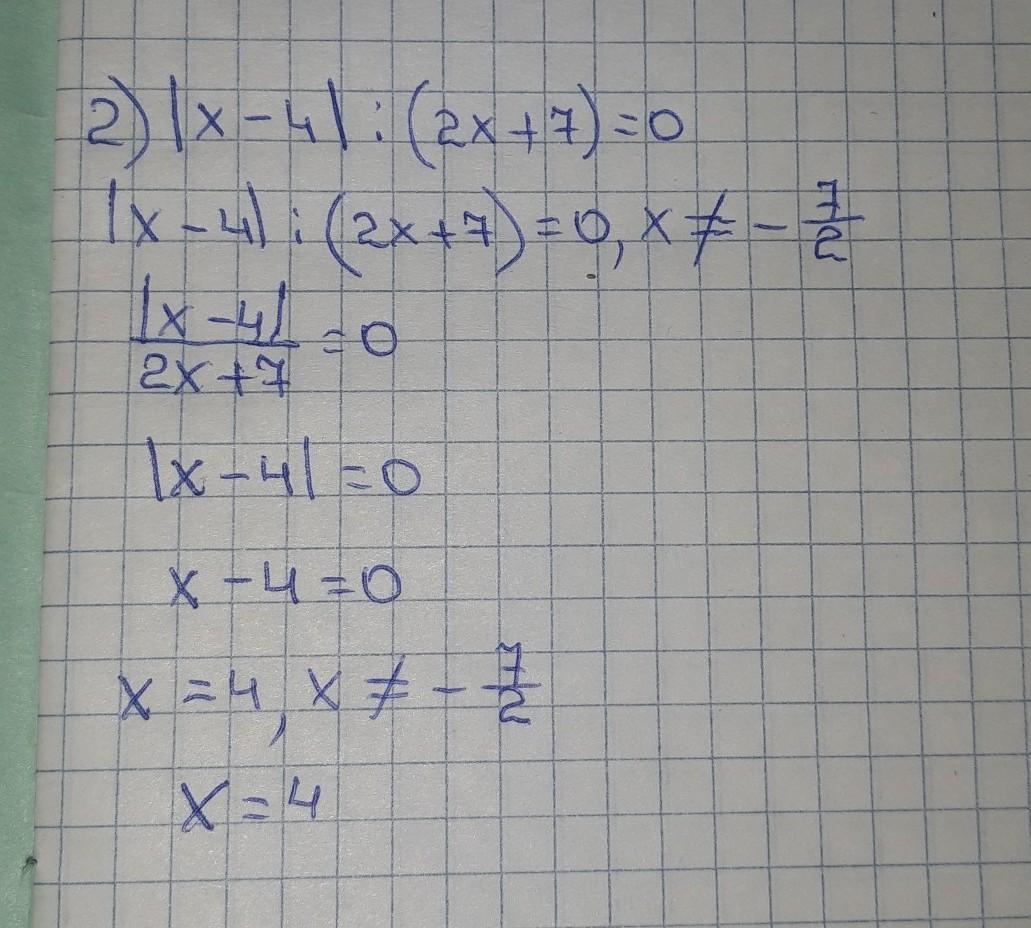 2) |x-4| : (2x+7)=0
|x-4| : (2x+7)=0, x≠-7/2
|x-4|/2x+7 =0
|x-4|=0
x-4=0
x=4, x≠-7/2
x=4